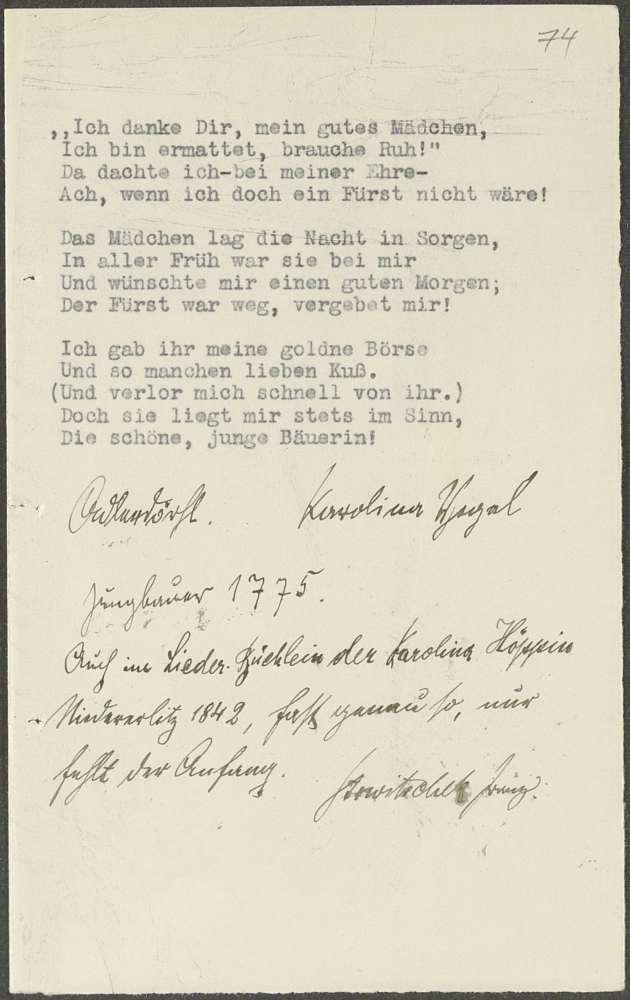 74
„Ich danke Dir, mein gutes Mädchen,
Ich bin ermattet, brauche Ruh!"
Da dachte ich-bei meiner Ehre-
Ach, wenn ich doch ein Fürst nicht wäre!
Das Mädchen lag die Nacht in Sorgen,
In aller Früh war sie bei mir
Und wünschte mir einen guten Morgen;
Der Fürst war weg, vergebet mir!
Ich gab ihr meine goldne Börse
Und so manchen lieben Kuß.
(Und verlor mich schnell von ihr.)
Doch sie liegt mir stets im Sinn,
Die schöne, junge Bäuerin!
Adlerdörfl. Karolina Vogel
Jungbauer 1775.
Auch im Lieder-Büchlein der Karolina Höppin
Niedererlitz 1842, fast genau so, nur
fehlt der Anfang.